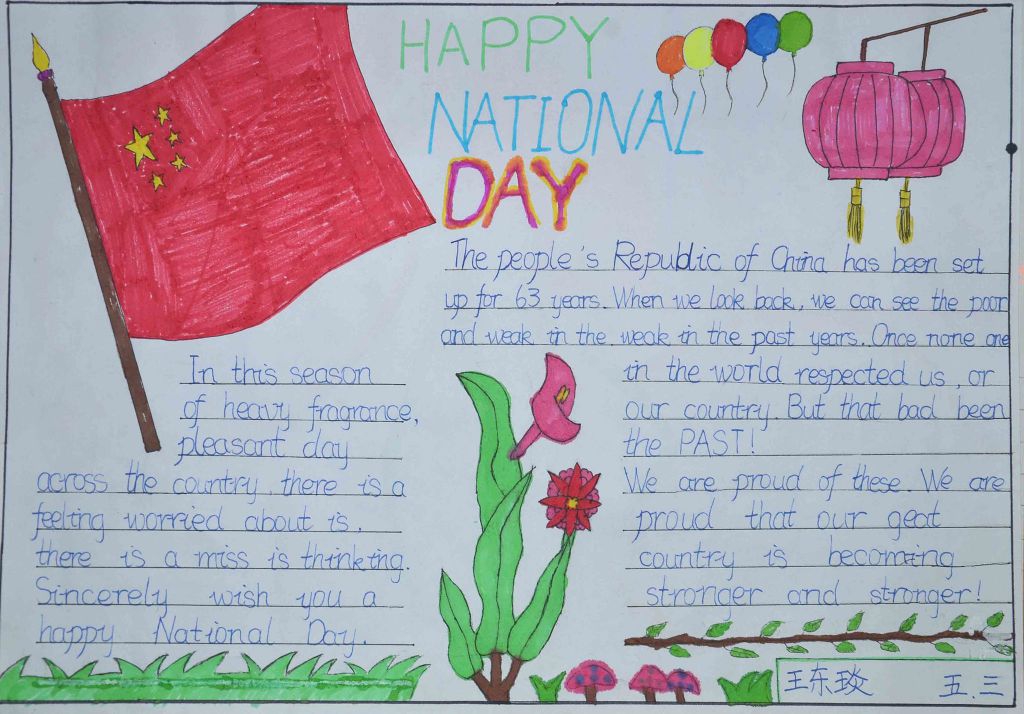 HAPPY
NATIONAL
DAY
The people's Republic of China has been set
up for 63 years. When we look back, we can see the poor
and weak in the weak in the past years. Once none one
in the world respected us, or
our country. But that bad been
the PAST!
We are proud of these. We are
proud that our geat
country is becoming
stronger and stronger!
In this season
of heavy fragrance,
pleasant day
across the country, there is a
feeling worried about is,
there is a miss is thinking.
Sincerely wish you a
happy National Day.
王东琰 五.三